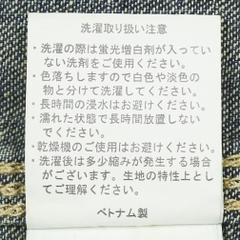 洗濯取り扱い注意
・洗濯の際は蛍光増白剤が入ってい
ない洗剤をご使用ください。
・色落ちしますので白色や淡色の
物と分けて洗濯してください。
・長時間の浸水はお避けください。
・濡れた状態で長時間放置しない
でください。
・乾燥機のご使用はお避けください。
・洗濯後は多少縮みが発生する場合
がございます。生地の特性上とし
てご理解ください。
ベトナム製